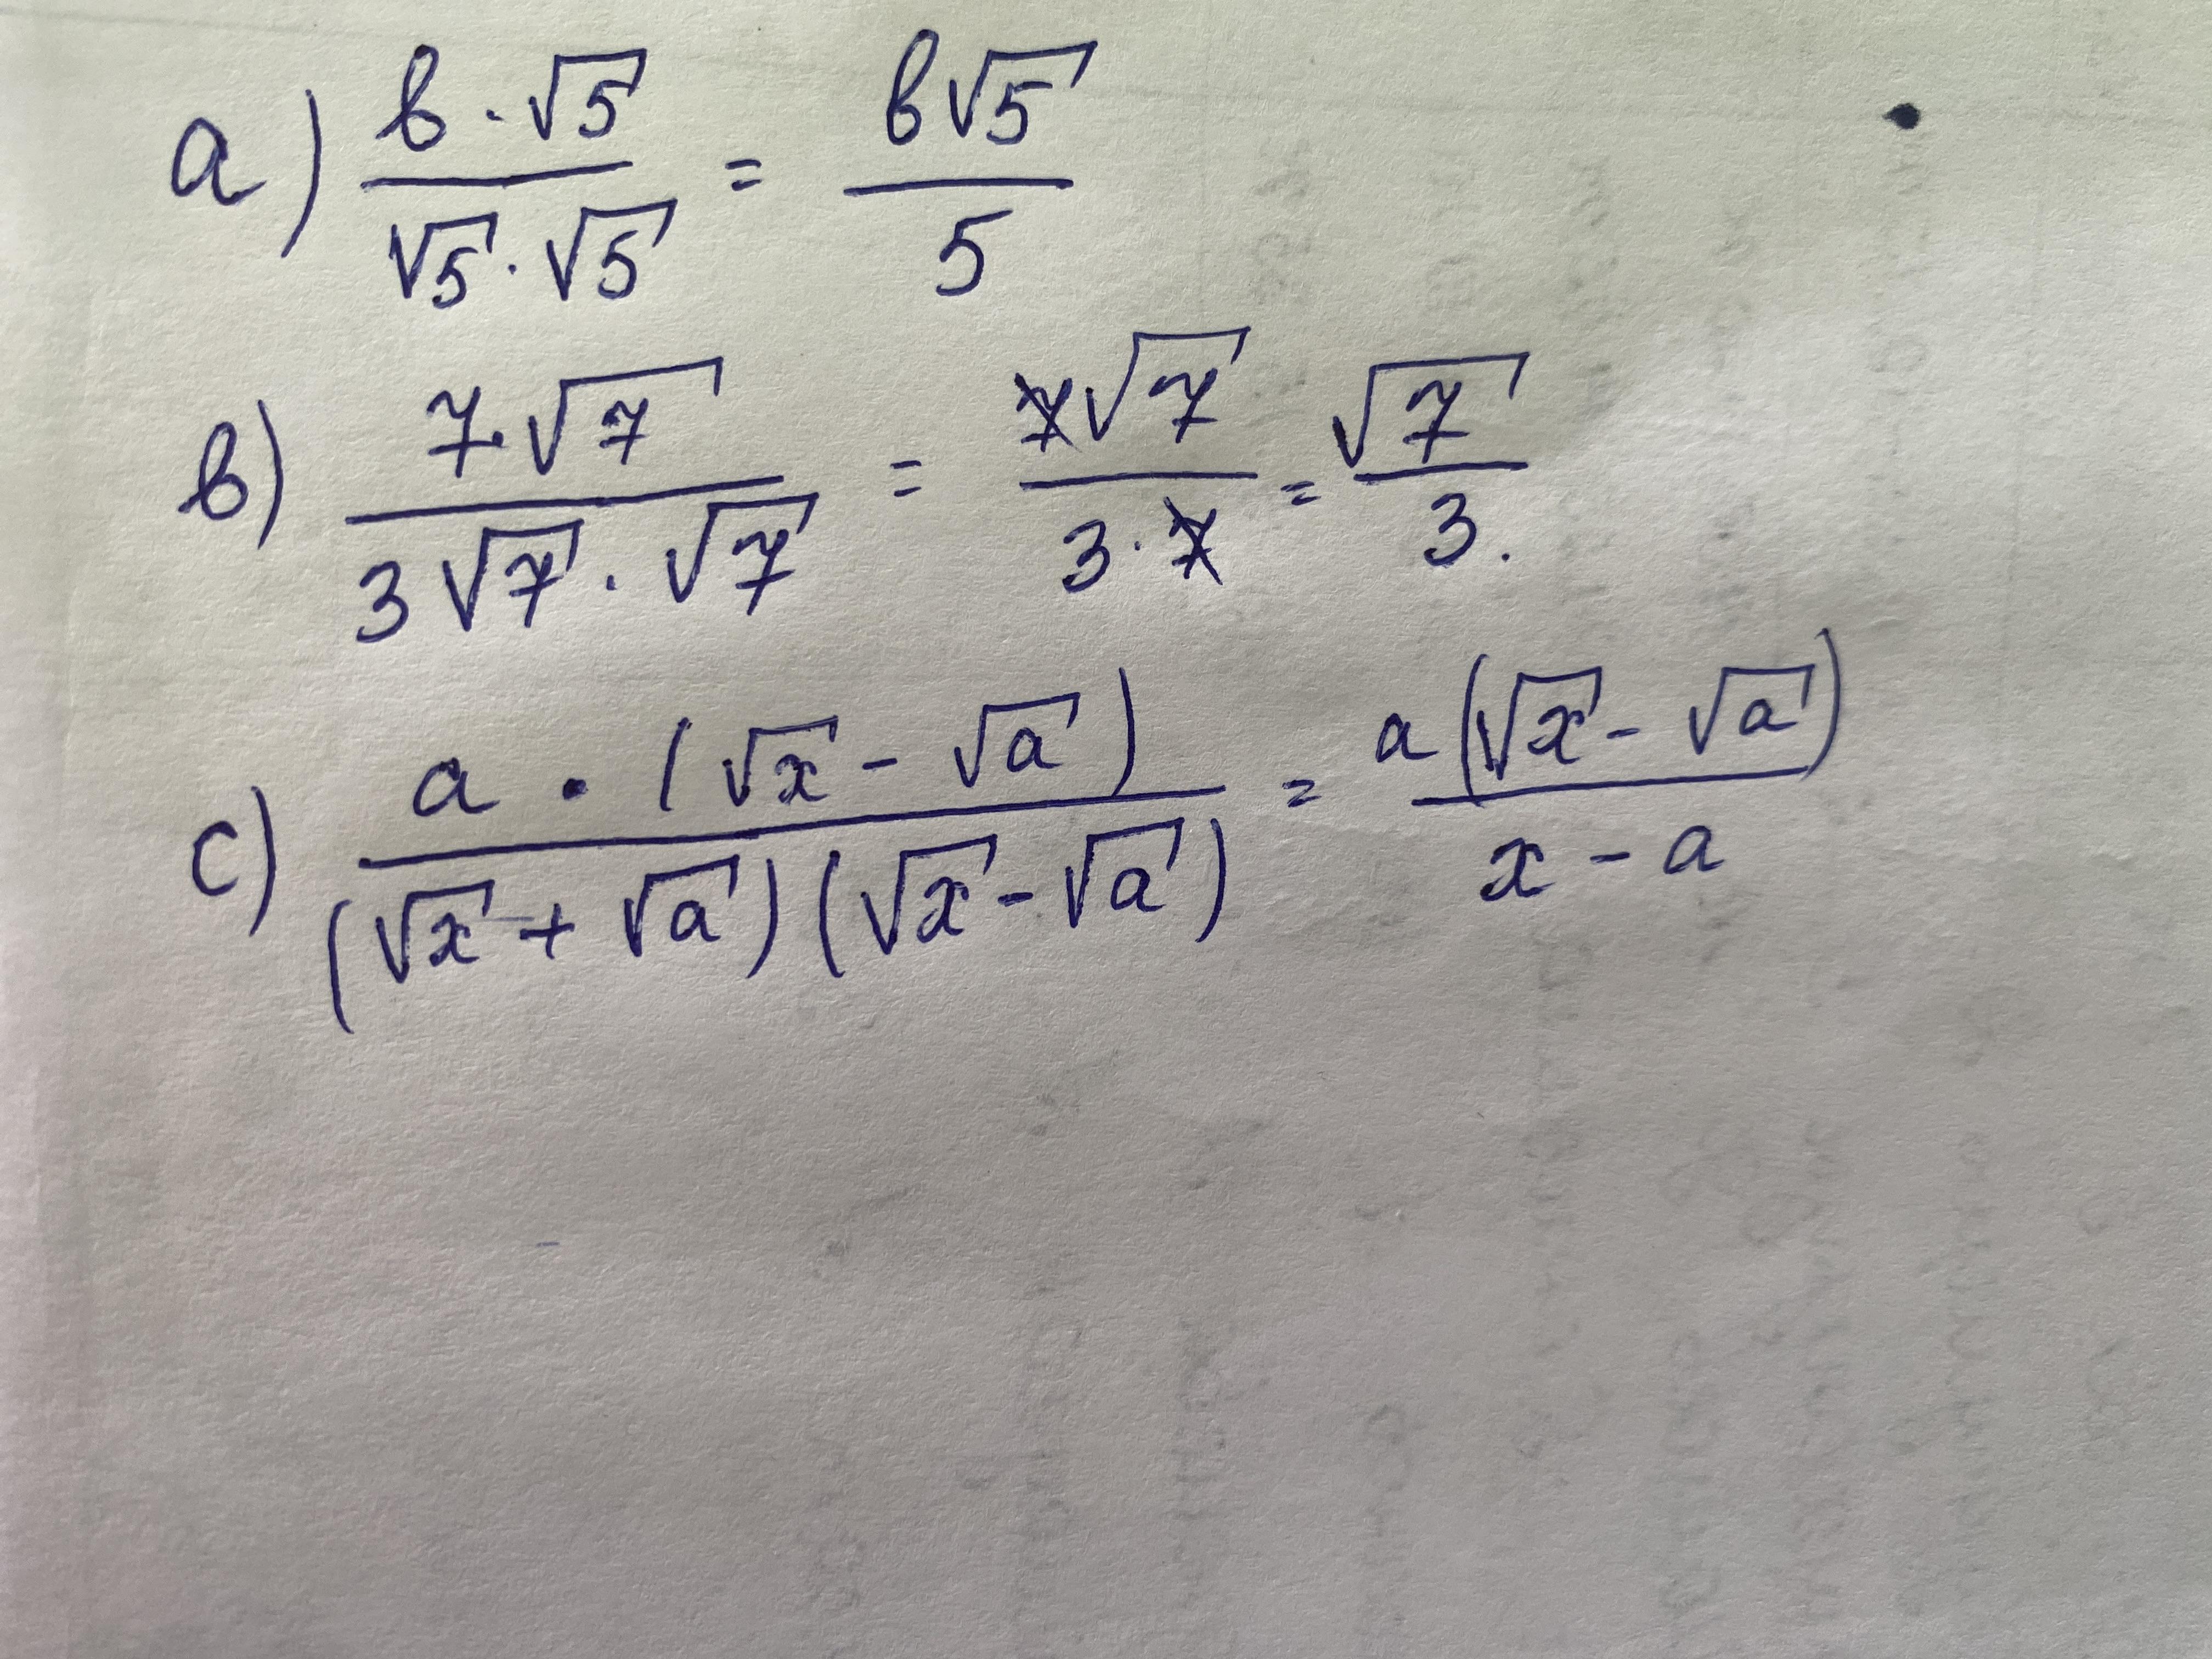 a) b · √5 / √5 · √5 = b√5 / 5
b) 7·√7 / 3√7 · √7 = 7√7 / 3 · 7 = √7 / 3.
c) a · (√x - √a) / (√x + √a)(√x - √a) = a(√x - √a) / x - a